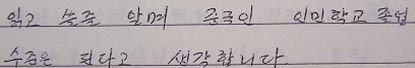 읽고 쓸줄 알며 중국인 인민학교 졸업
수준은 된다고 생각합니다.